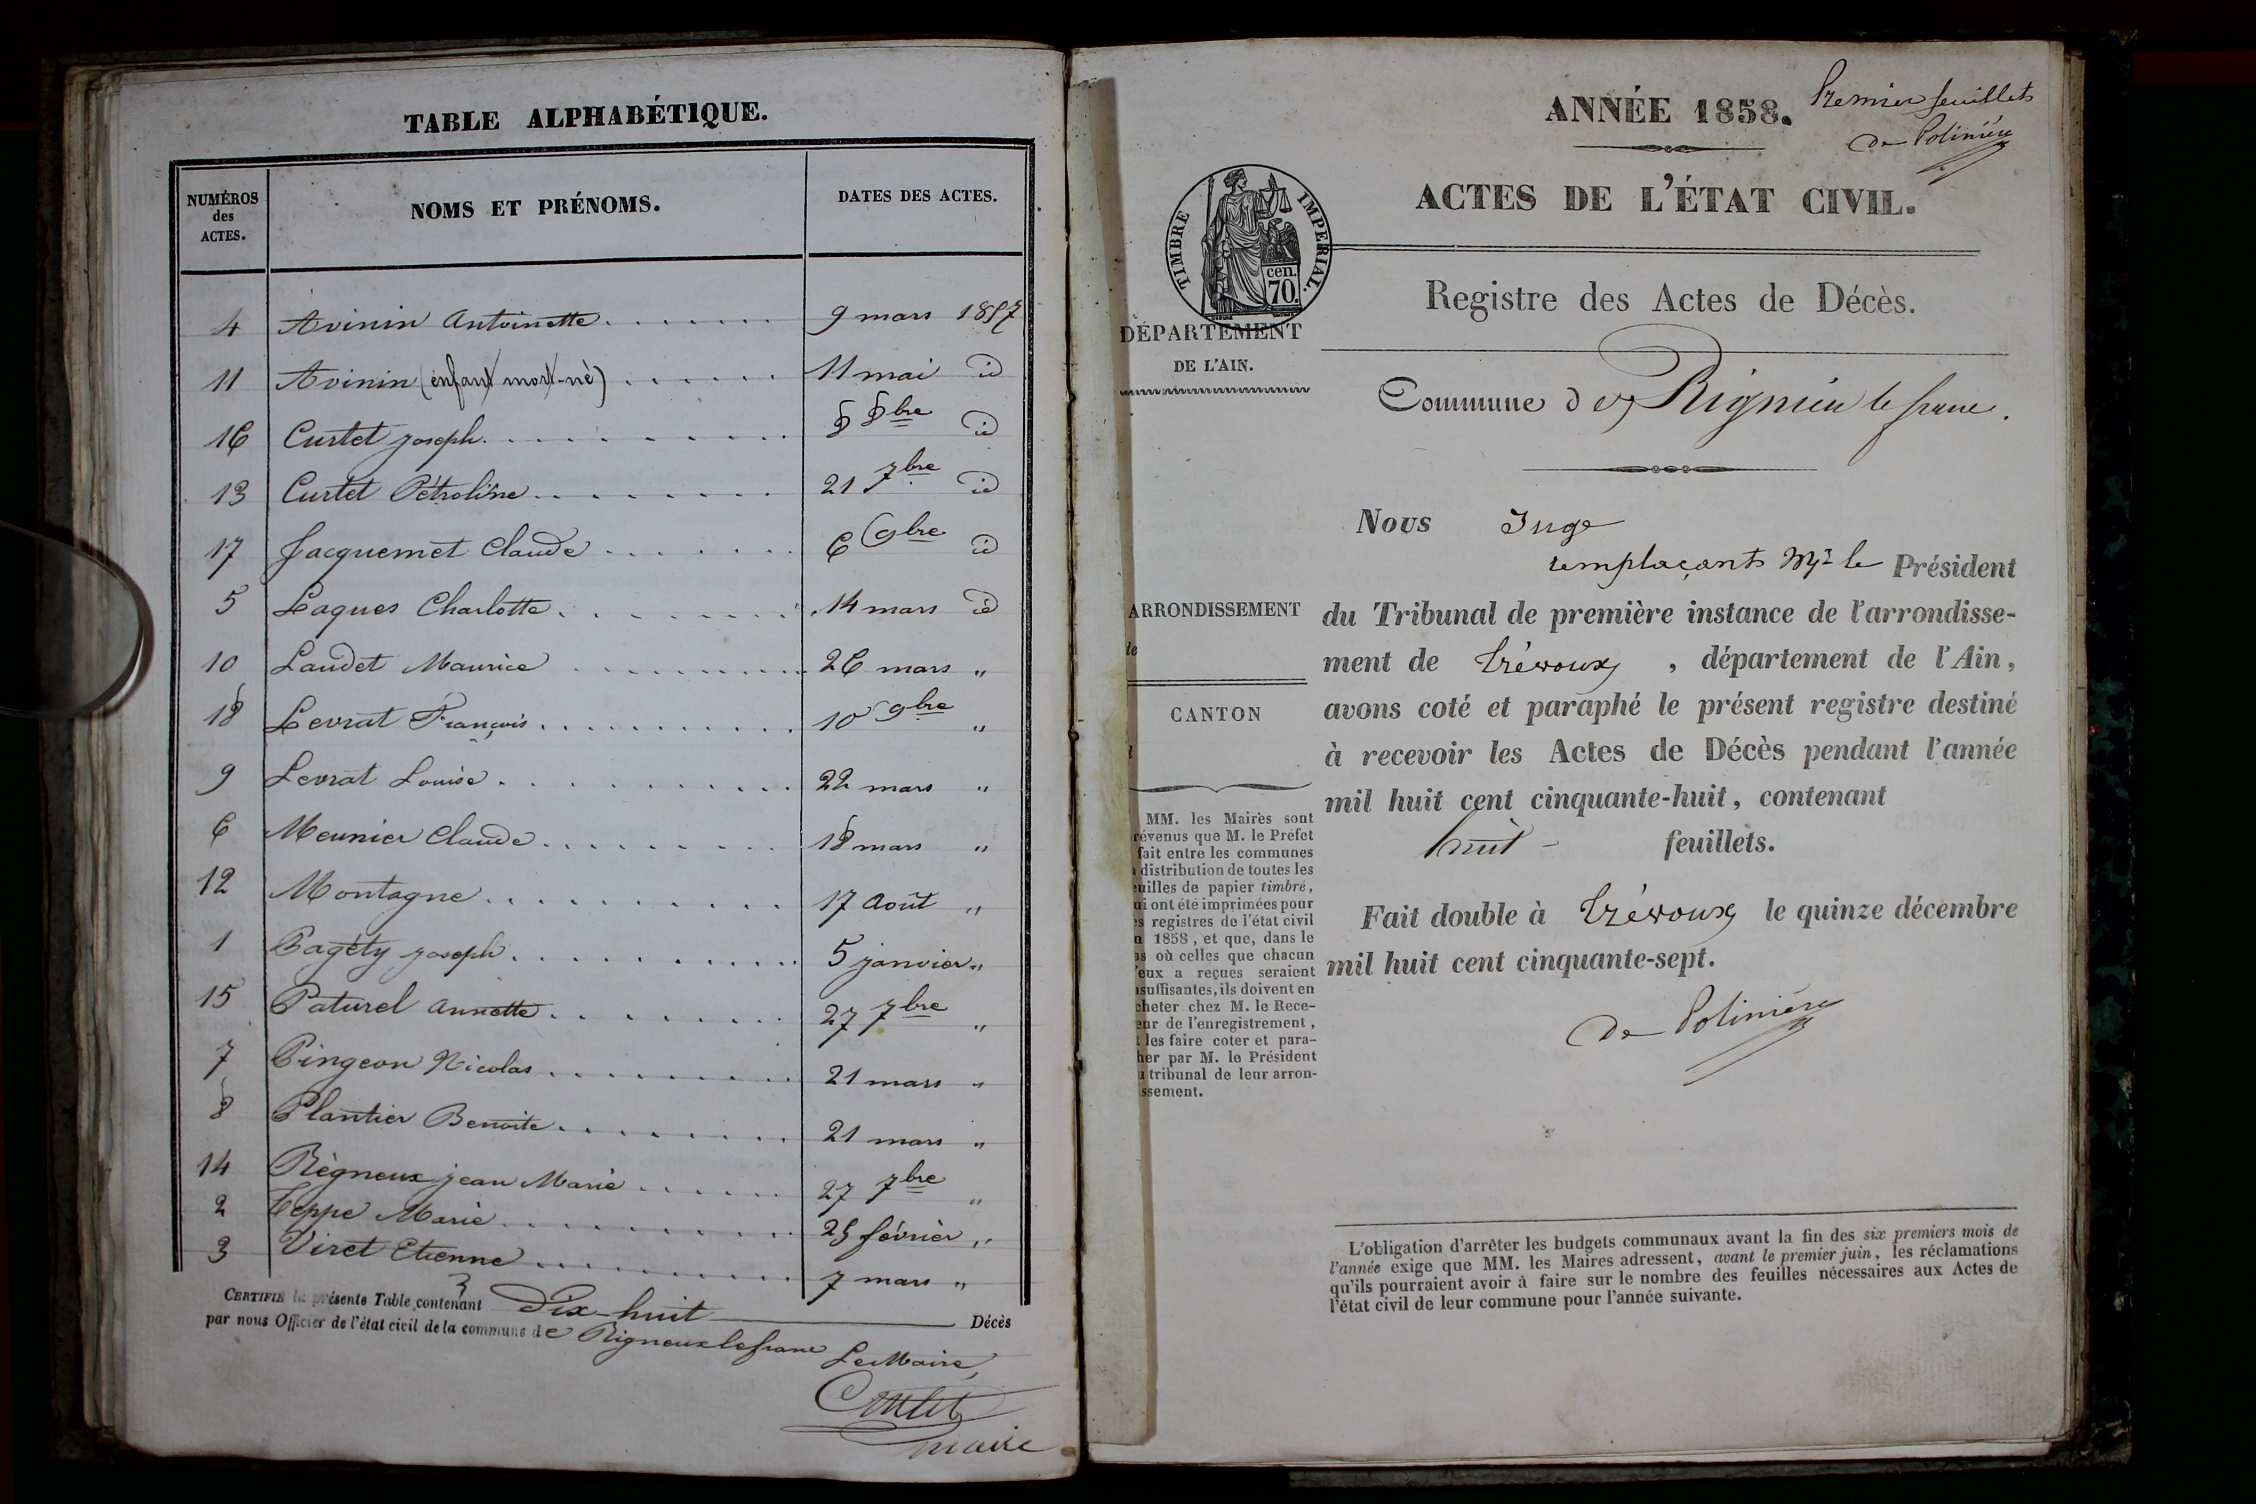 TABLE ALPHABÉTIQUE.
NUMÉROS des ACTES.
NOMS ET PRÉNOMS.
DATES DES ACTES.
4 Avinin Antoinette 9 mars 1857
11 Avinin (enfant mort-né) 11 mai id
16 Curtet joseph 8 8bre id
13 Curtet Pétroline 21 7bre id
17 Jacquemet Claude 6 9bre id
5 Laques Charlotte 14 mars id
10 Laudet Maurice 26 mars "
18 Levrat François 10 9bre "
9 Levrat Louise 22 mars "
6 Meunier Claude 18 mars "
12 Montagne 17 Août "
1 Pagéty joseph 5 janvier "
15 Paturel annette 27 7bre "
7 Pingeon Nicolas 21 mars "
8 Plantier Benoite 21 mars "
14 Règneux jean Marie 27 7bre "
2 Teppe Marie 25 février "
3 Viret Etienne 7 mars "
CERTIFIÉ la présente Table contenant Dix-huit Décès
par nous Officier de l'état civil de la commune de Rigneux le franc
Le Maire,
maire
Premier feuillets
de Polinière
ANNÉE 1858.
ACTES DE L'ÉTAT CIVIL.
TIMBRE IMPERIAL.
cen.
70.
Registre des Actes de Décès.
DÉPARTEMENT
DE L'AIN.
Commune de Rignieu le franc.
Nous Juge
remplaçants Mr le Président
ARRONDISSEMENT
du Tribunal de première instance de l'arrondisse-
ment de trévoux, département de l'Ain,
CANTON
avons coté et paraphé le présent registre destiné
à recevoir les Actes de Décès pendant l'année
mil huit cent cinquante-huit, contenant
huit feuillets.
Fait double à trévoux le quinze décembre
mil huit cent cinquante-sept.
de Polinière
MM. les Maires sont
révenus que M. le Préfet
fait entre les communes
distribution de toutes les
euilles de papier timbré,
ui ont été imprimées pour
es registres de l'état civil
n 1858, et que, dans le
as où celles que chacun
'eux a reçues seraient
nsuffisantes, ils doivent en
cheter chez M. le Rece-
eur de l'enregistrement,
t les faire coter et para-
her par M. le Président
u tribunal de leur arron-
ssement.
L'obligation d'arrêter les budgets communaux avant la fin des six premiers mois de
l'année exige que MM. les Maires adressent, avant le premier juin, les réclamations
qu'ils pourraient avoir à faire sur le nombre des feuilles nécessaires aux Actes de
l'état civil de leur commune pour l'année suivante.